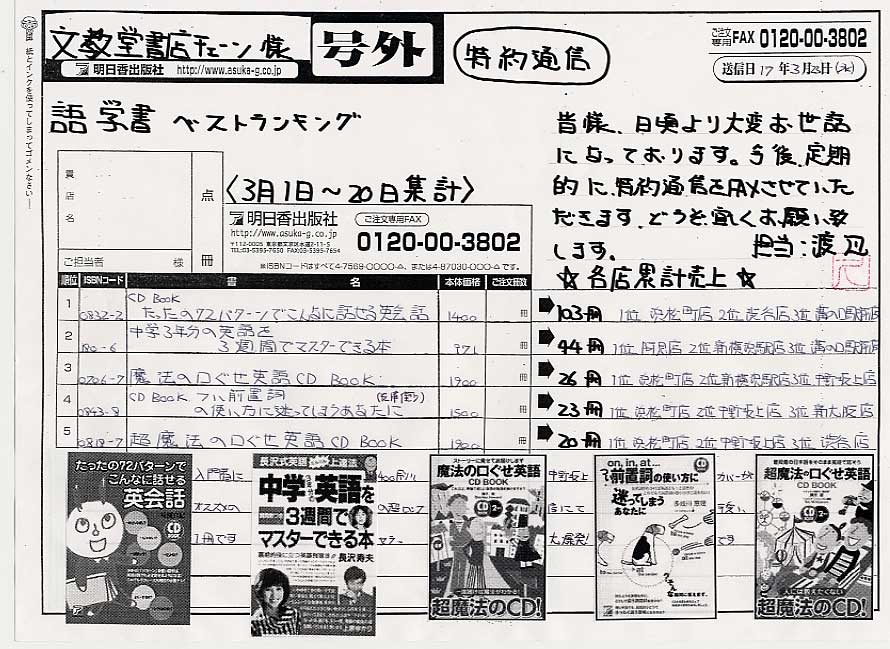 紙とインクを使ってしまってゴメンなさい…
文教堂書店チェーン 様
明日香出版社 http://www.asuka-g.co.jp
号外
特約通信
ご注文専用FAX 0120-00-3802
送信日 17年3月23日(水)
語学書 ベストランキング
皆様、日頃より大変お世話
になっております。今後、定期
的に、特約通信をFAXさせていた
だきます。どうぞ宜しくお願い致
します。 担当:渡辺
貴店名
点
冊
ご担当者 様
〈3月1日~20日集計〉
明日香出版社 ご注文専用FAX
http://www.asuka-g.co.jp
〒112-0005 東京都文京区水道2-11-5
TEL:03-5395-7650 FAX:03-5395-7654
0120-00-3802
※ISBNコードはすべて4-7569-○○○○-△、または4-87030-○○○-△です。
☆各店累計売上☆
順位 ISBNコード 書名 本体価格 ご注文冊数
1 0832-2 CD BOOK
たったの72パターンでこんなに話せる英会話 1400 冊 103冊 1位 浜松町店 2位 渋谷店 3位 溝の口駅前店
2 180-6 中学3年分の英語を
3週間でマスターできる本 971 冊 44冊 1位 阿見店 2位 新横浜駅店 3位 溝の口駅前店
3 0706-7 魔法の口ぐせ英語 CD BOOK 1900 冊 26冊 1位 浜松町店 2位 新横浜駅店 3位 中野坂上店
4 0843-8 CD BOOK つい前置詞
の使い方に迷ってしまうあなたに 1500 冊 23冊 1位 浜松町店 2位 中野坂上店 3位 新大阪店
5 0818-7 超魔法の口ぐせ英語 CD BOOK 1900 冊 20冊 1位 浜松町店 2位 中野坂上店 3位 渋谷店
たったの72パターンで
こんなに話せる
英会話
CD BOOK
入門者に
オススメの
1冊です
長沢式英語 上達法
中学3年分の英語を
3週間で
マスターできる本
長沢寿夫
ストーリーに乗せてお届けします
魔法の口ぐせ英語
CD BOOK
超魔法のCD!
中野坂上
店にて
大爆発!
on, in, at...
つい前置詞の使い方に
迷ってしまう
あなたに
カバーが
です
超魔法の口ぐせ英語
CD BOOK
人には教えたくない
超魔法のCD!